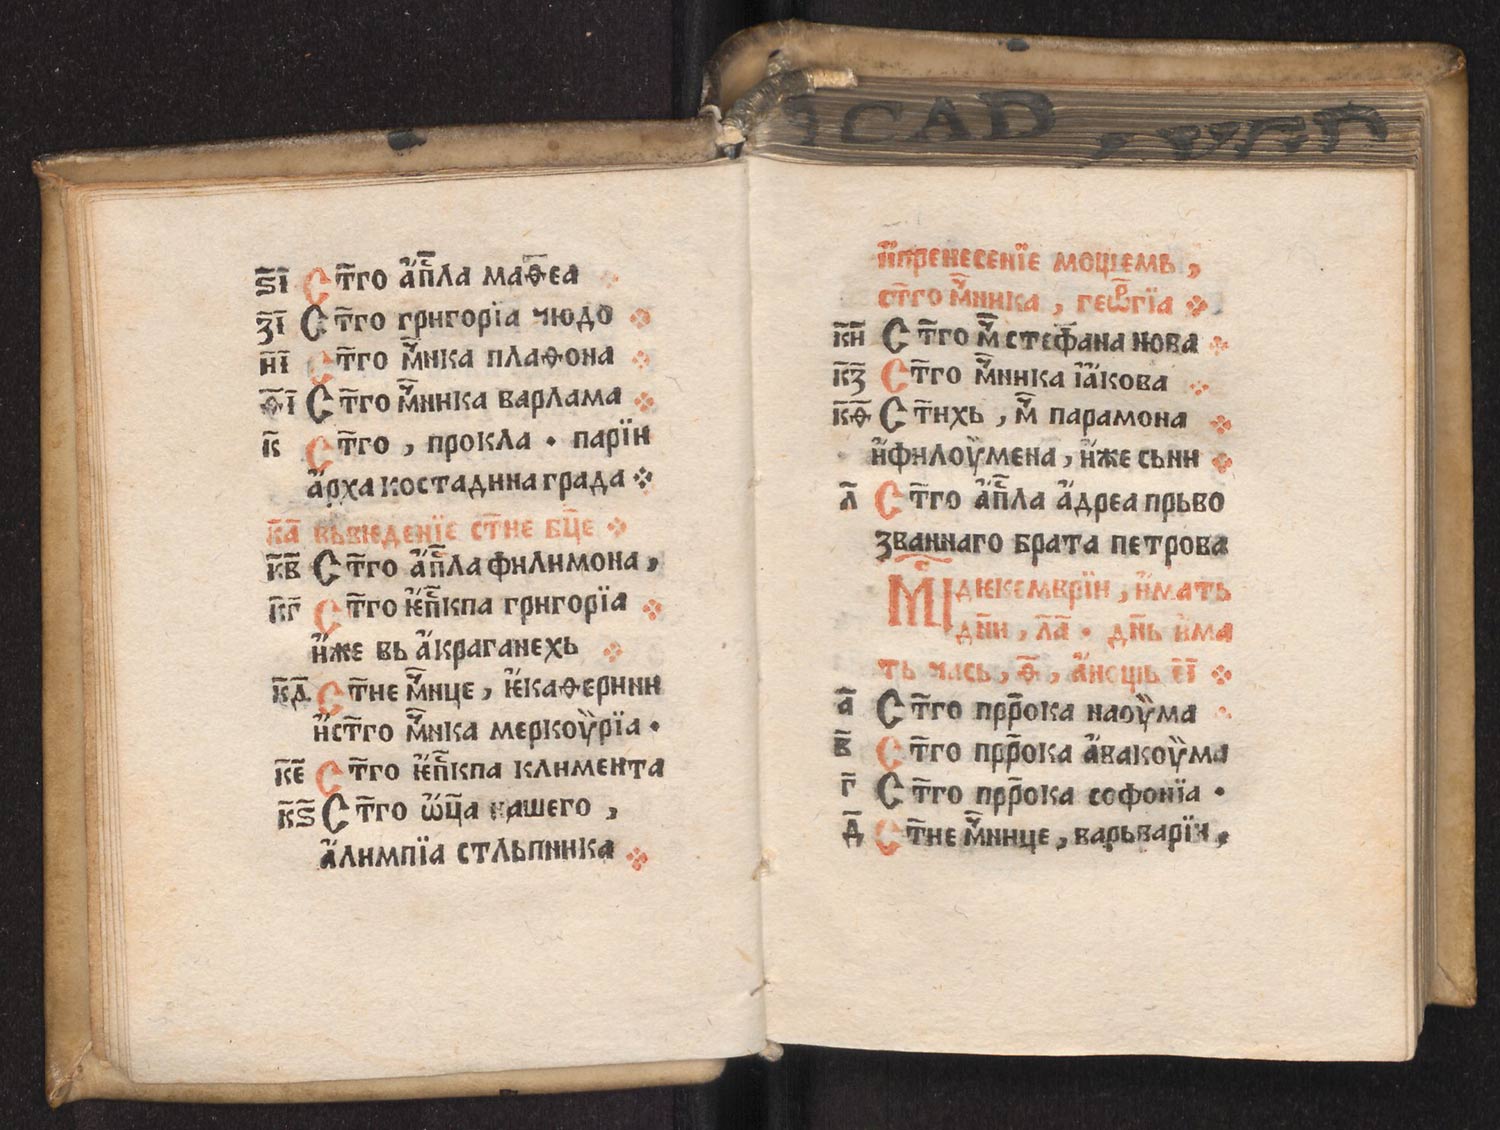 ѕ҃і Ст҃го а҆пⷭ҇ла маѳеа
з҃і Ст҃го григорїа чюдо
н҃і Ст҃го мⷱ҇нка плаѳона
ѳ҃і Ст҃го мⷱ҇ника варлама
к҃ Ст҃го , прокла · парїи
а҆рха костадина града
к҃а вьвѣденїе ст҃не бц҃е
к҃в Ст҃го а҆пⷭ҇ла филимона ,
к҃г Ст҃го ѥ҆пⷭ҇кпа григорїа
и҆же вь а҆краганехь
к҃д Ст҃не мⷱ҇нце , ѥ҆каѳерини
и҆ст҃го мⷱ҇нка меркоу҆рїа ·
к҃е Ст҃го ѥ҆пⷭ҇кпа климента
к҃ѕ Ст҃го ѡ҆ц҃а нашего ,
а҆лимпїа стльпника
и҆пренесенїе мощемь ,
ст҃го мⷱ҇ника , геѡⷬ҇гїа
к҃и Ст҃го мⷱ҇ стефана нова
к҃з Ст҃го мⷱ҇ника ꙗ҆кова
к҃ѳ Ст҃ихь , мⷱ҇ парамона
и҆филоу҆мена , и҆же сьни
л҃ Ст҃го а҆пⷭ҇ла а҆дреа прьво
званнаго брата петрова
Мⷭ҇ц дѥкемврїи , и҆мать
дн҃и , л҃а · дн҃ь има
ть чась , ѳ҃ , а҆нощь е҃і
а҃ Ст҃го прⷪ҇рока наоу҆ма
в҃ Ст҃го прⷪ҇рока а҆вакоу҆ма
г҃ Ст҃го прⷪ҇рока софонїа ·
д҃ Ст҃не мⷱ҇нице , варьварїи ,